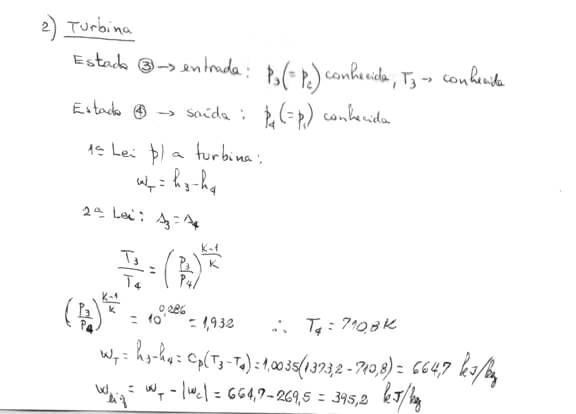 2) Turbina
Estado ③ → entrada: P₃(= P₂) conhecida, T₃ → conhecida
Estado ④ → saída: P₄(= P₁) conhecida
1ª Lei p/ a turbina:
w_T = h₃ - h₄
2ª Lei: s₃ = s₄
T₃/T₄ = (P₃/P₄)^((K-1)/K)
(P₃/P₄)^((K-1)/K) = 10^0,286 = 1,932 ∴ T₄ = 710,8 K
w_T = h₃ - h₄ = Cp(T₃ - T₄) = 1,0035(1373,2 - 710,8) = 664,7 kJ/kg
w_líq = w_T - |w_c| = 664,7 - 269,5 = 395,2 kJ/kg